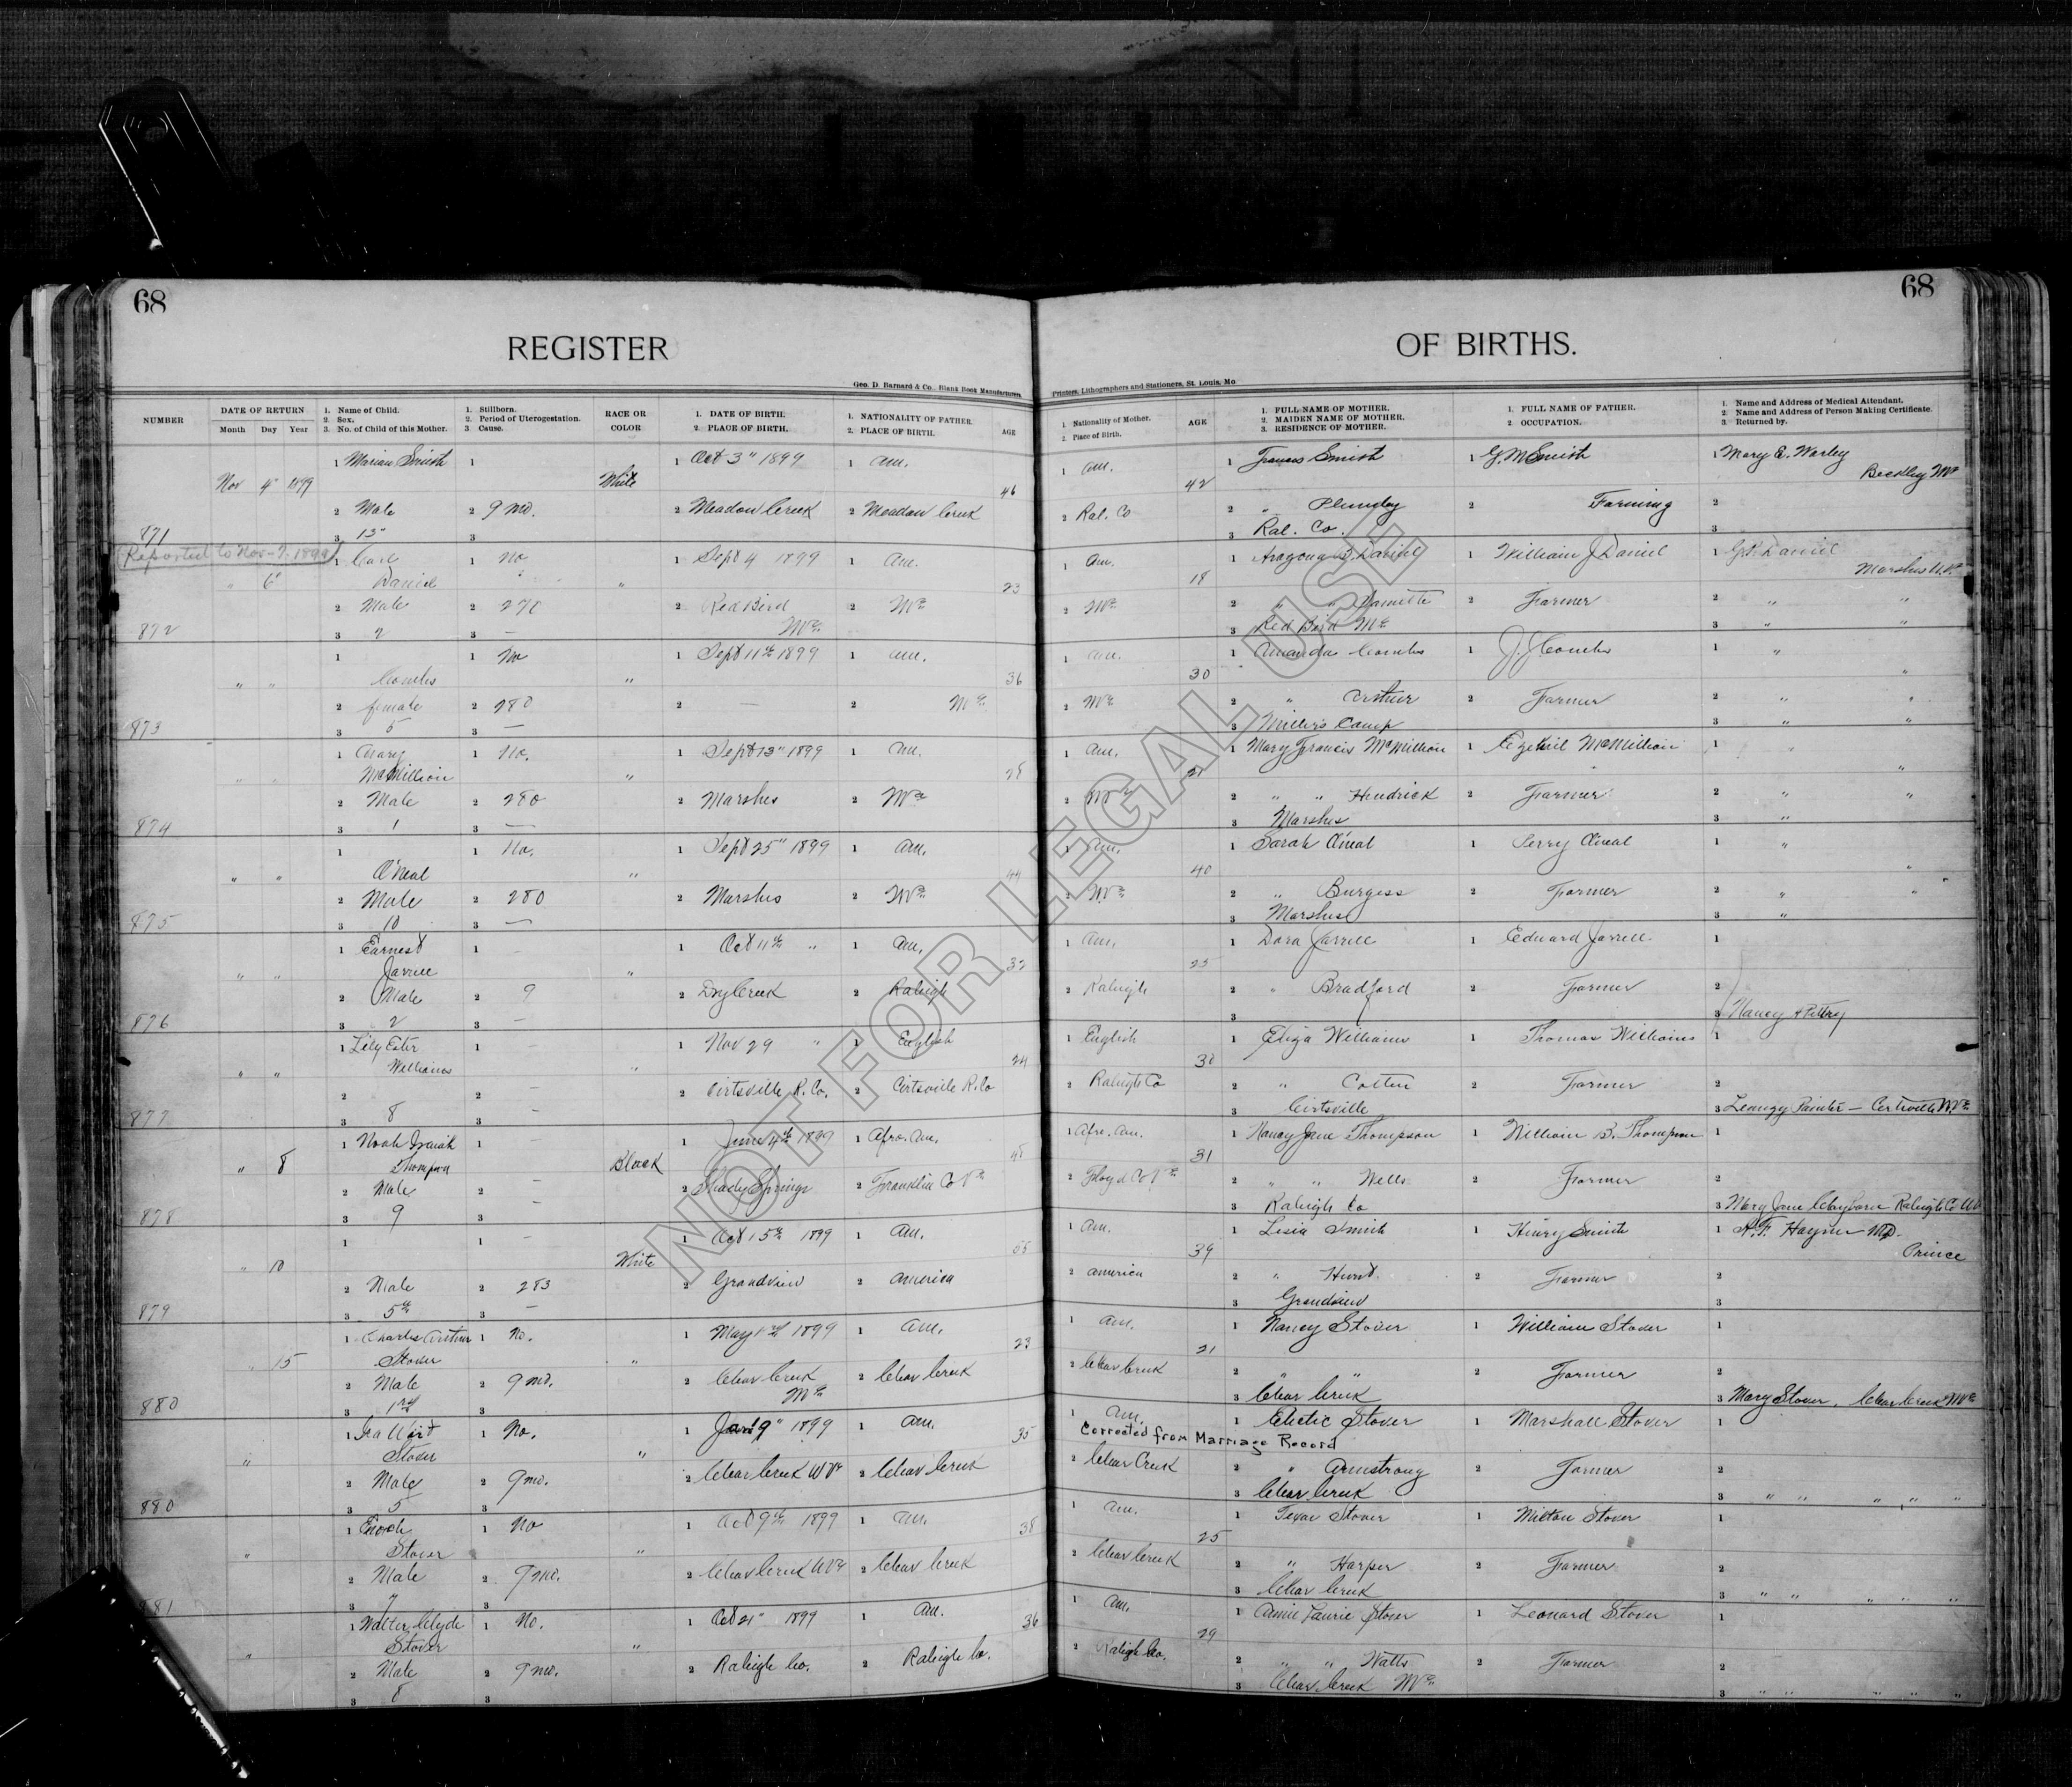 68
68
REGISTER
OF BIRTHS.
Geo. D. Barnard & Co., Blank Book Manufacturers,
Printers, Lithographers and Stationers, St. Louis, Mo
NUMBER
DATE OF RETURN
Month Day Year
1. Name of Child.
2. Sex.
3. No. of Child of this Mother.
1. Stillborn.
2. Period of Uterogestation.
3. Cause.
RACE OR
COLOR
1. DATE OF BIRTH.
2. PLACE OF BIRTH.
1. NATIONALITY OF FATHER.
2. PLACE OF BIRTH.
AGE
1. Nationality of Mother.
2. Place of Birth.
AGE
1. FULL NAME OF MOTHER.
2. MAIDEN NAME OF MOTHER.
3. RESIDENCE OF MOTHER.
1. FULL NAME OF FATHER.
2. OCCUPATION.
1. Name and Address of Medical Attendant.
2. Name and Address of Person Making Certificate.
3. Returned by.
1 Marian Smith 1 1 Oct 3" 1899 1 Am. 1 Am. 1 Frances Smith 1 G. M Smith 1 Mary E. Warley
Nov 4" 1899 White 46 42 Beckley Wva
2 Male 2 9 mo. 2 Meadow Creek 2 Meadow Creek 2 Ral. Co 2 " Plumley 2 Farming 2
871 3 13" 3 3 Ral. Co. 3
Reported to Nov-7-1899
1 Carl 1 No 1 Sept 4 1899 1 Am. 1 Am. 1 Daniel 1 William J Daniel 1 Daniel
" 6" Daniel " 23 18 Marshes W.Va
2 Male 2 270 2 Red Bird 2 Wva 2 Wva 2 " " 2 Farmer 2 " "
872 3 2 3 — Wva 3 Red Bird Wva 3 " "
1 1 No 1 Sept 11th 1899 1 Am. 1 Am. 1 Amanda Combs 1 J. J Combs 1 "
" " Combs " 36 30 "
2 female 2 280 2 — 2 Wva 2 Wva 2 " Arthur 2 Farmer 2 " "
873 3 5 3 — 3 Miller's Camp 3 " "
1 1 No. 1 Sept 13" 1899 1 Am. 1 Am. 1 Mary Francis McMillion 1 Ezekiel McMillion 1 "
" " McMillion " 28 "
2 Male 2 280 2 Marshes 2 Wva 2 Wva 2 " " Hendrick 2 Farmer 2 " "
874 3 1 3 — 3 Marshes 3 " "
1 1 No. 1 Sept 25" 1899 1 Am. 1 Am. 1 Sarah O'neal 1 Perry O'neal 1 "
" " O'Neal " 44 40 "
2 Male 2 280 2 Marshes 2 Wva 2 Wva 2 " Burgess 2 Farmer 2 " "
875 3 10 3 — 3 Marshes 3 "
1 Earnest 1 1 Oct 11th " 1 Am. 1 Am. 1 Dora Jarrell 1 Edward Jarrell 1
" " Jarrell " 32 25
2 Male 2 9 2 Dry Creek 2 Raleigh 2 Raleigh 2 " Bradford 2 Farmer 2
876 3 2 3 — 3 3 Nancy A Pettry
1 Lily Ester 1 — 1 Nov 29 " 1 English 1 English 1 Eliza Williams 1 Thomas Williams 1
" " Williams " 24 30
2 2 — 2 Cirtsville R. Co. 2 Cirtsville R. Co 2 Raleigh Co 2 " Cotten 2 Farmer 2
877 3 8 3 — 3 Cirtsville 3 Painter — Cirtsville W.Va
1 Noah Isaiah 1 — 1 June 4th 1899 1 Afro. Am. 1 Afro. Am. 1 Nancy Jane Thompson 1 William B. Thompson 1
" 8 Thompson Black 45 31
2 Male 2 — 2 Shady Springs 2 Franklin Co Va 2 Floyd Co Va 2 " " Wells 2 Farmer 2
878 3 9 3 3 Raleigh Co 3 Mary Jane Clayborn Raleigh Co
1 1 — 1 Oct 15th 1899 1 Am. 1 Am. 1 Smith 1 Henry Smith 1 MD.
" 10 White 55 39 Prince
2 Male 2 283 2 Grandview 2 America 2 America 2 " Hunt. 2 Farmer 2
879 3 5th 3 — 3 Grandview 3
1 Charles Arthur 1 No. 1 May 1st 1899 1 Am. 1 Am. 1 Nancy Stover 1 William Stover 1
" 15 Stover " 23 21
2 Male 2 9 mo. 2 Clear Creek 2 Clear Creek 2 Clear Creek 2 " " 2 Farmer 2
880 3 1st 3 Wva 3 Clear Creek 3 Mary Stover, Clear Creek Wva
1 Ira Wirt 1 No. 1 Jan 9" 1899 1 Am. 1 Am. 1 Stover 1 Marshall Stover 1
" Stover " 35 Corrected from Marriage Record
2 Male 2 9 mo. 2 Clear Creek W Va 2 Clear Creek 2 Clear Creek 2 " Armstrong 2 Farmer 2
880 3 5 3 3 Clear Creek 3 " " " " "
1 Enoch 1 No 1 Oct 9th 1899 1 Am. 1 Am. 1 Texas Stover 1 Milton Stover 1
" Stover " 38 25
2 Male 2 9 mo. 2 Clear Creek W Va 2 Clear Creek 2 Clear Creek 2 " Harper 2 Farmer 2
881 3 7 3 3 Clear Creek 3 " " " " "
1 Walter Clyde 1 No. 1 Oct 21" 1899 1 Am. 1 Am. 1 Annie Laurie Stover 1 Leonard Stover 1
" Stover " 36 29
2 Male 2 9 mo. 2 Raleigh Co. 2 Raleigh Co. 2 Raleigh Co. 2 " " Watts 2 Farmer 2
3 8 3 3 Clear Creek Wva 3 " " " " "
NOT FOR LEGAL USE